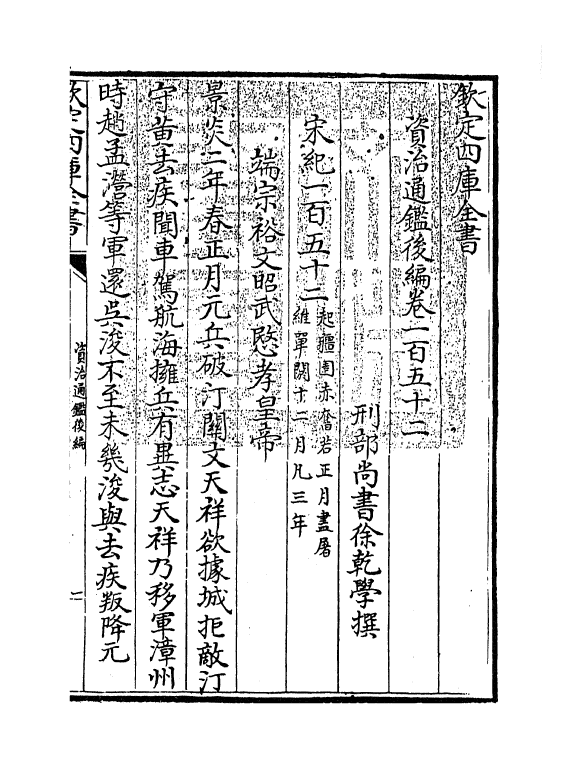 欽定四庫全書
資治通鑑後編卷一百五十二
刑部尚書徐乾學撰
宋紀一百五十二起彊圉赤奮若正月盡屠
維單閼十二月凡三年
端宗裕文昭武愍孝皇帝
景炎二年春正月元兵破汀關文天祥欲據城拒敵汀
守黄去疾聞車駕航海擁兵有異志天祥乃移軍漳州
時趙孟濳等軍還吳浚不至未幾浚與去疾叛降元
欽定四庫全書
資治通鑑後編